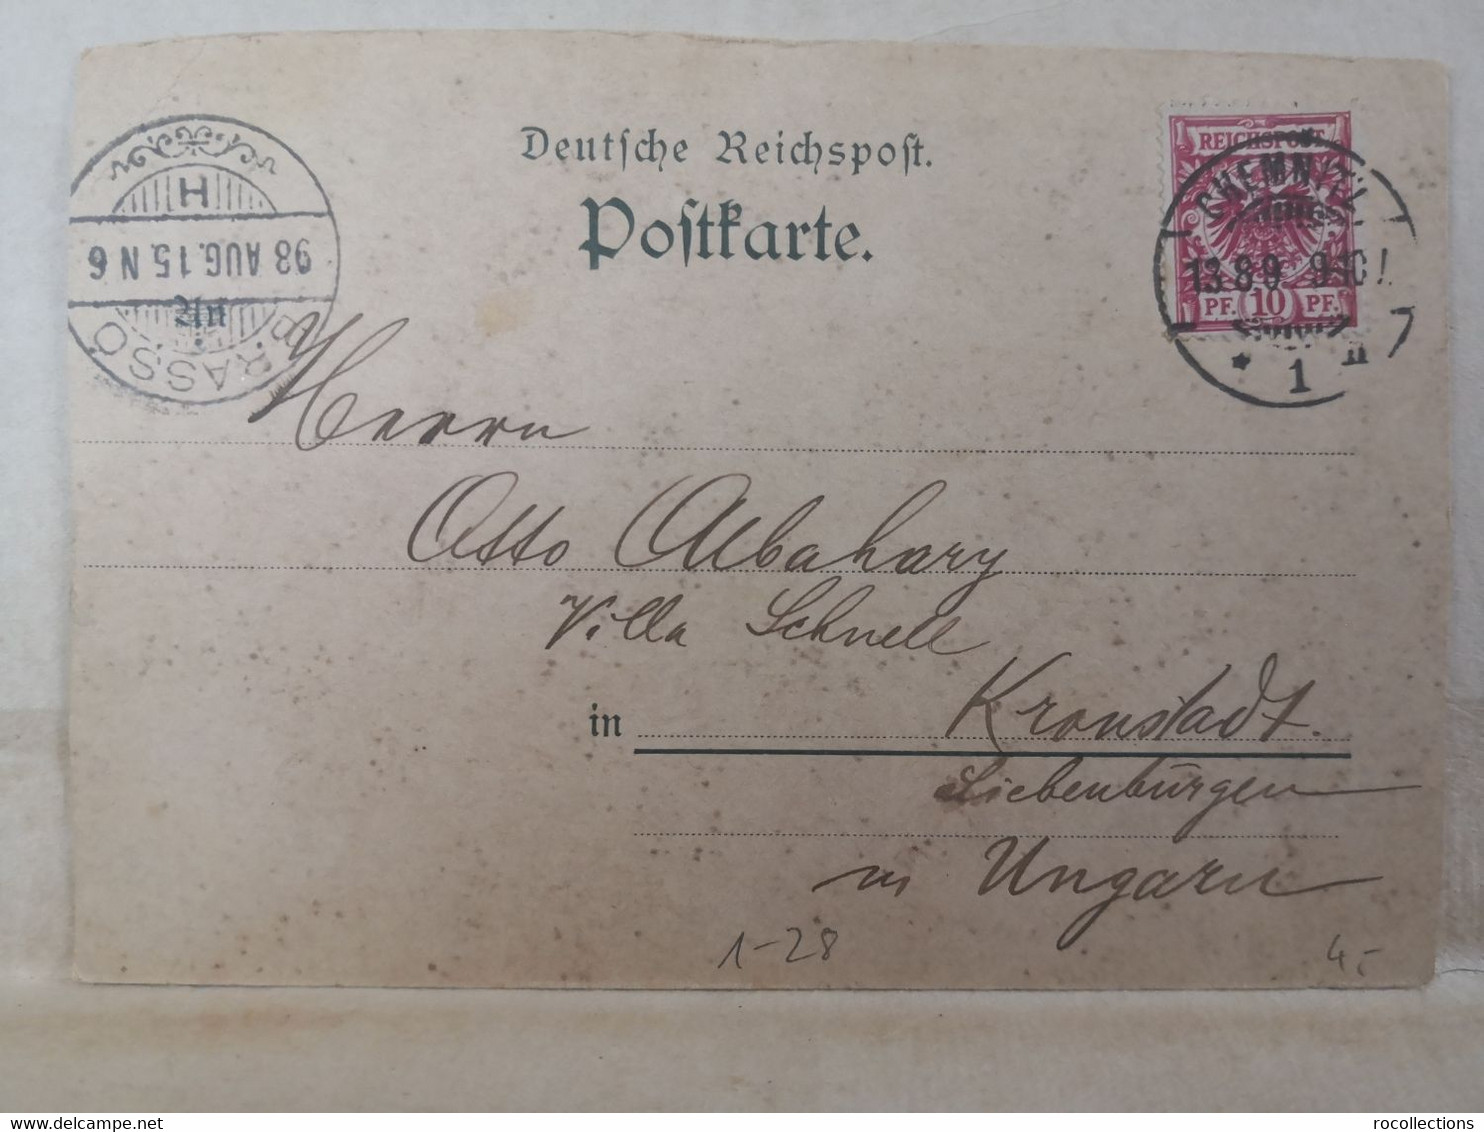 Deutsche Reichspost.
Postkarte.
REICHSPOST
PF. 10 PF.
CHEMNITZ
13 8 9
* 1 n
BRASSÓ
98 AUG. 15. N 6
H
Herrn
Otto Albahary
Villa Schnell
in Kronstadt.
Siebenbürgen
in Ungarn
1-28
4.-
rocollections